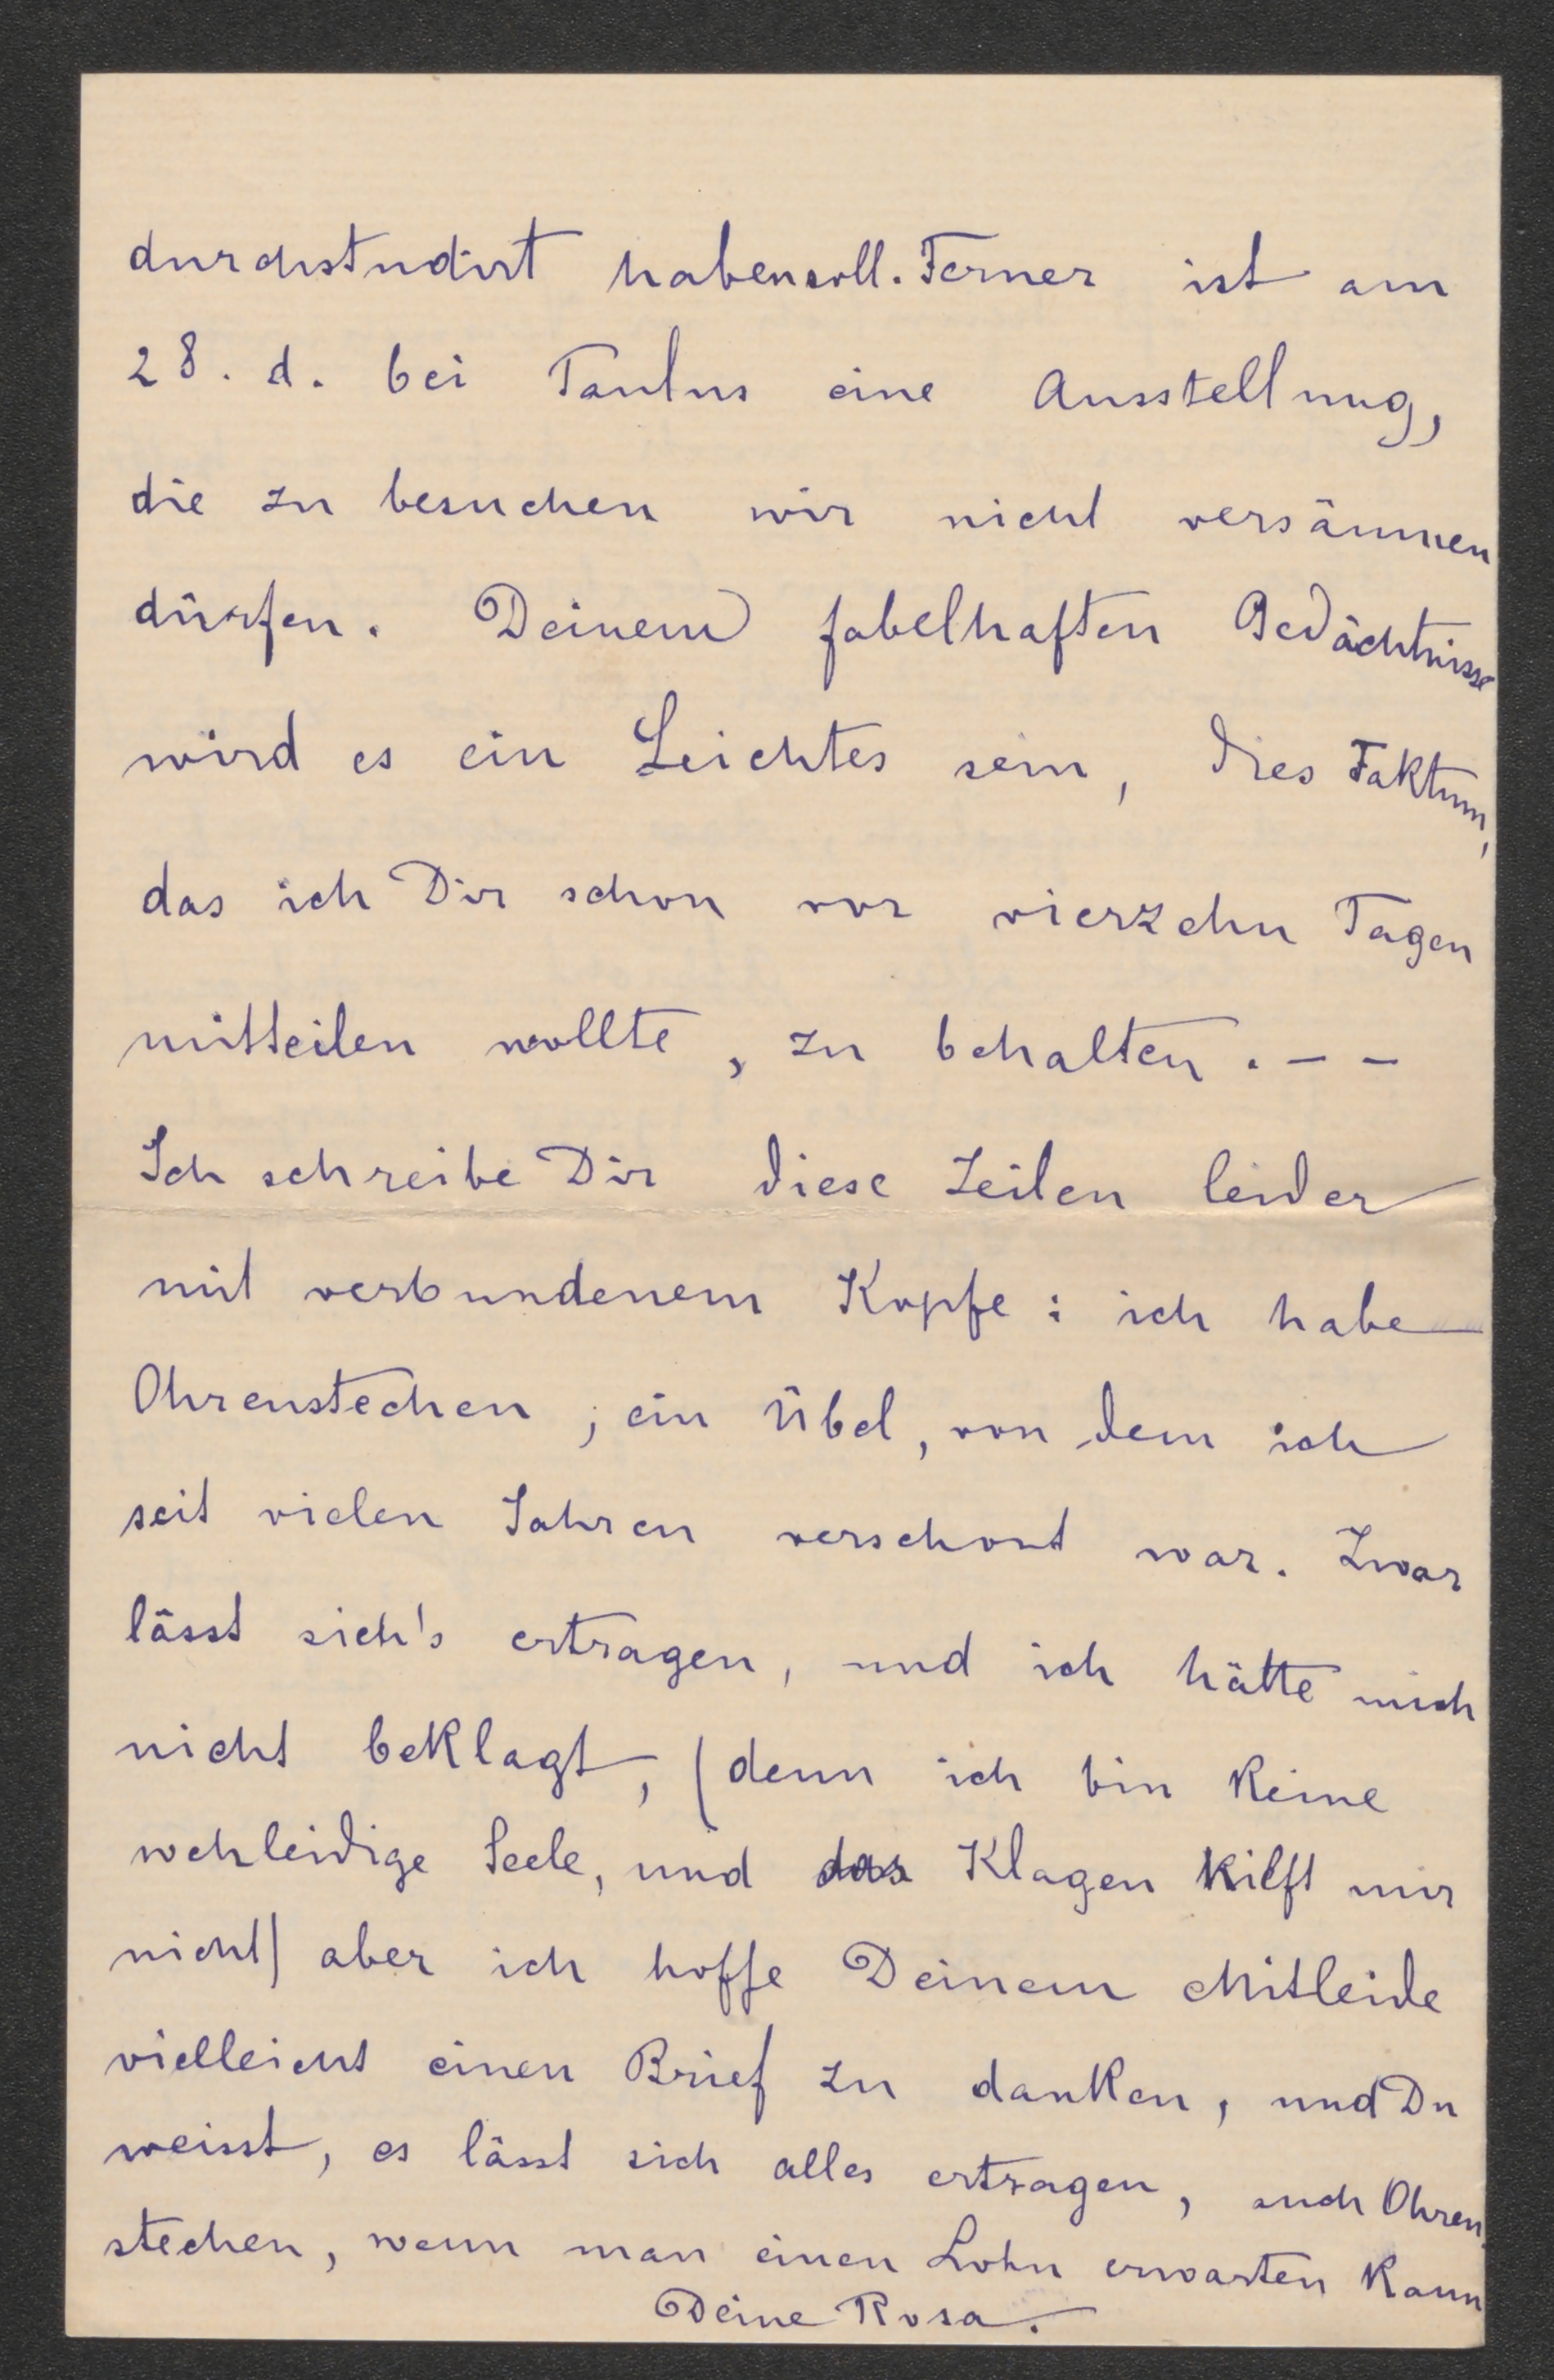 durchstudirt haben soll. Ferner ist am
28. d. bei Paulus eine Ausstellung,
die zu besuchen wir nicht versäumen
dürfen. Deinem fabelhaften Gedächtnisse
wird es ein Leichtes sein, dies Faktum,
das ich Dir schon vor vierzehn Tagen
mitteilen wollte, zu behalten. – –
Ich schreibe Dir diese Zeilen leider
mit verbundenem Kopfe: ich habe
Ohrenstechen, ein Übel, von dem ich
seit vielen Jahren verschont war. Zwar
lässt sich's ertragen, und ich hätte mich
nicht beklagt, (denn ich bin keine
wehleidige Seele, und das Klagen hilft mir
nicht) aber ich hoffe Deinem Mitleide
vielleicht einen Brief zu danken, und Du
weisst, es lässt sich alles ertragen, auch Ohren
stechen, wenn man einen Lohn erwarten kann
Deine Rosa.